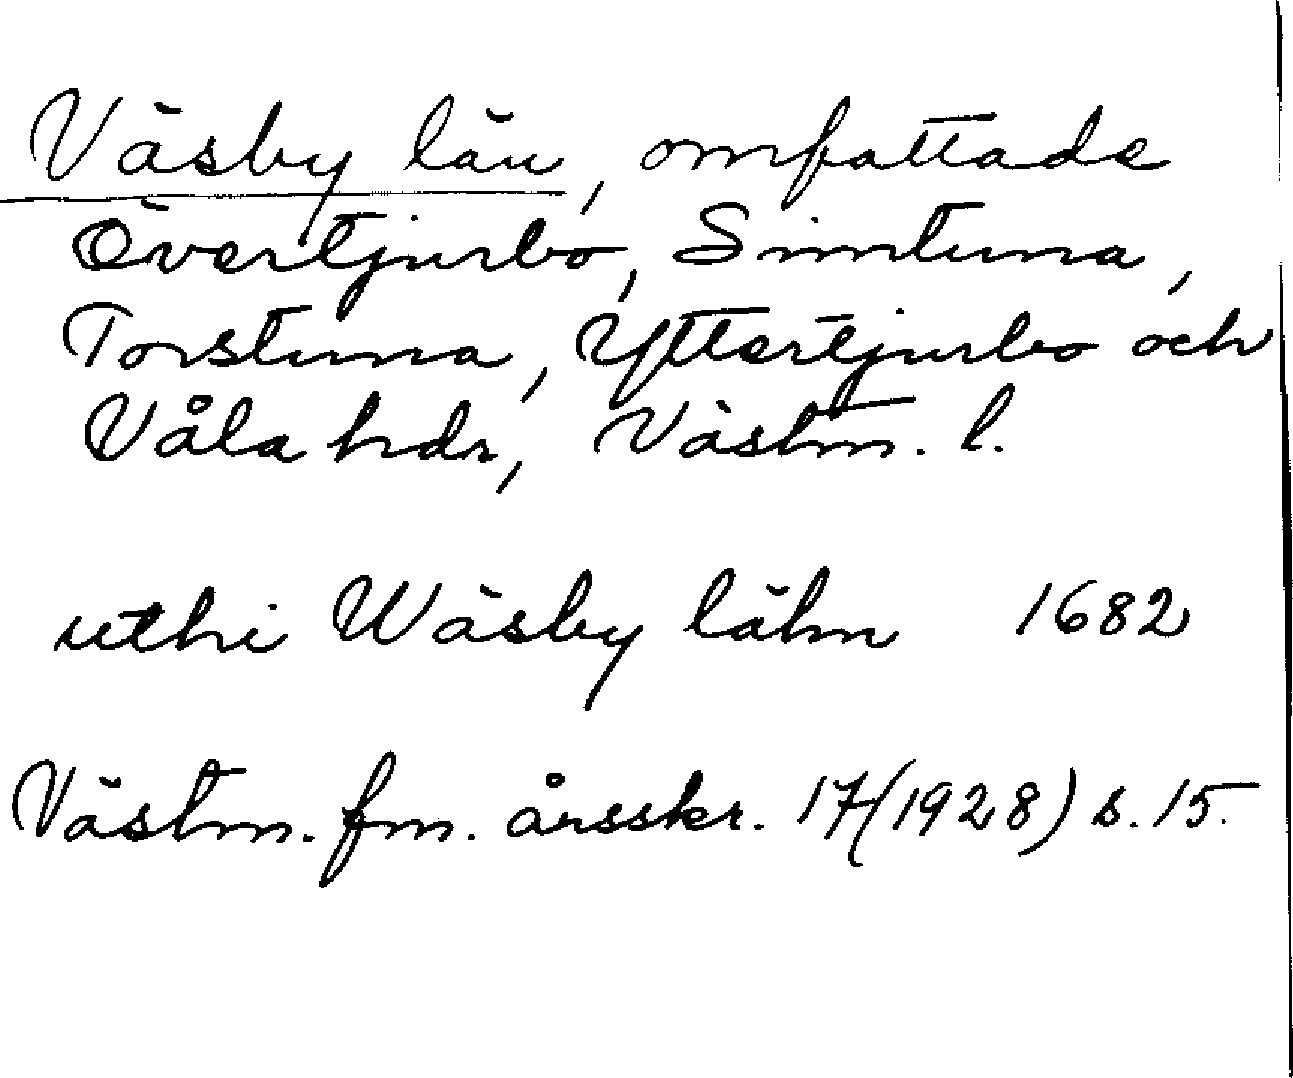 Väsby län, omfattade
Övertjurbo, Simtuna,
Torstuna, Yttertjurbo och
Våla hdr, Västm. l.
uthi Wäsby lähn 1682
Västm. fm. årsskr. 17(1928) s. 15.